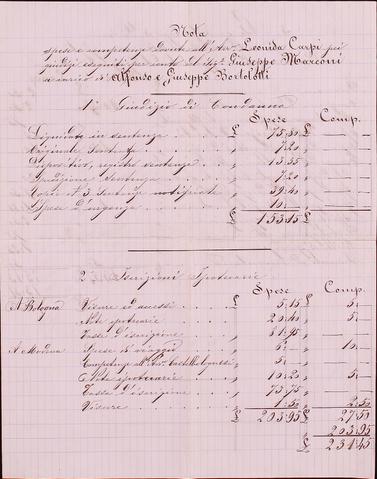 Nota
spese e competenze dovute all'Avv. Leonida Carpi pei
giudizi eseguiti per conto del Sig. Giuseppe Marconi
a carico d'Alfonso e Giuseppe Bortolotti
1° Giudizio di Condanna
Spese Comp.
Liquidate in sentenza £ 75,80 £ —
Originale Sentenza „ 7,20 „ —
Dispositivo, registro sentenza „ 13,55 „ —
Spedizione Sentenza „ 7,20 „ —
Copie N° 3 Sentenze notificate „ 39,40 „ —
Spese d'urgenza „ 10,— „ —
£ 153,15 £ —
2° Iscrizioni Ipotecarie
Spese Comp.
A Bologna Visure ed accessi £ 5,15 £ 5,—
Note ipotecarie „ 20,40 „ 5,—
Tassa d'iscrizione „ 81,95 „ —
A Modena Spese di viaggio „ 6,— „ 10,—
Competenze all'Avv. „ 5,— „ —
Note ipotecarie „ 10,20 „ 5,—
Tassa d'iscrizione „ 73,75 „ —
Visure „ 1,50 „ 2,50
£ 203,95 £ 27,50
„ 203,95
£ 231,45